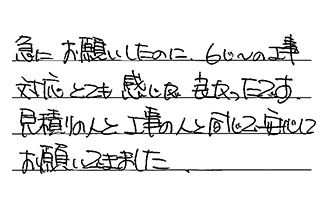 急に お願いしたのに、6じ〜の工事
対応 とても 感じ良 良かったです。
見積りの人と、工事の人と同じで安心して
お願いできました